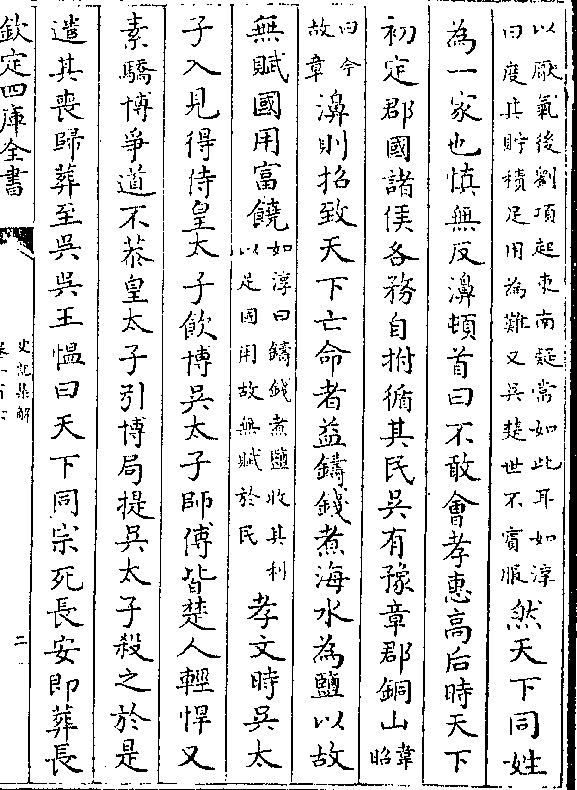 以厭氣後劉項起東南疑當如此耳如淳
曰度其貯積足用為難又吳楚世不賔服
然天下同姓
為一家也慎無反濞頓首曰不敢會孝惠高后時天下
初定郡國諸侯各務自拊循其民吳有豫章郡銅山
韋昭
曰今
故章
濞則招致天下亡命者益鑄錢煮海水為鹽以故
無賦國用富饒
如淳曰鑄錢煮鹽收其利
以足國用故無賦於民
孝文時吳太
子入見得侍皇太子飲博吳太子師傅皆楚人輕悍又
素驕博爭道不恭皇太子引博局提吳太子殺之於是
遣其喪歸葬至吳吳王愠曰天下同宗死長安即葬長
欽定四庫全書
史記集解
卷一百六
二